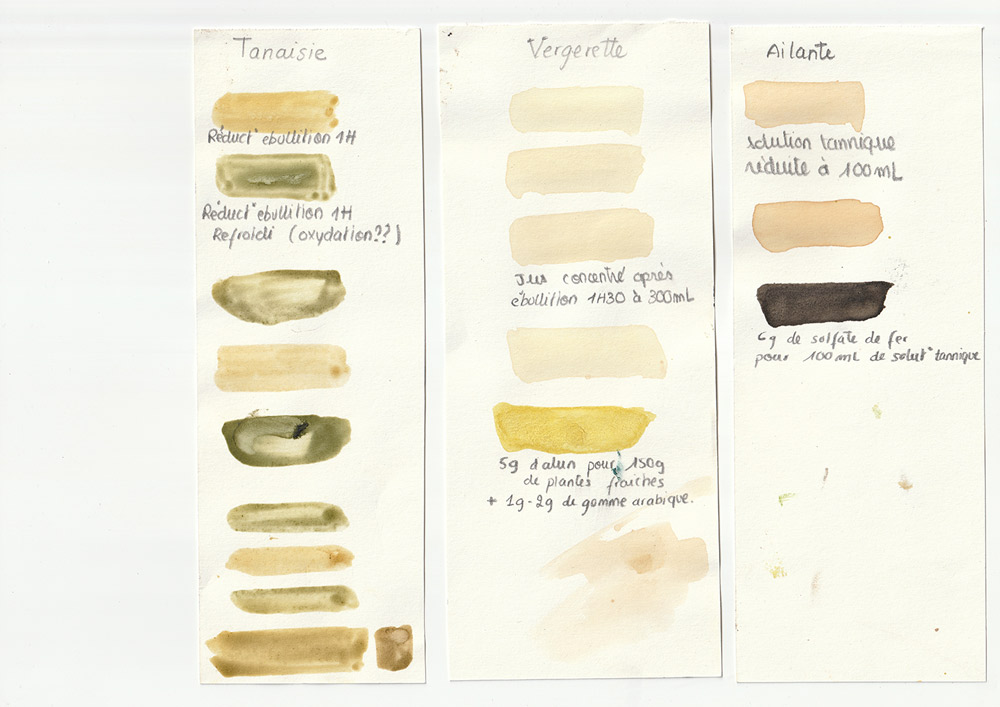 Tanaisie
Réduct° ebullition 1H
Réduct° ebullition 1H
Refroidi (oxydation??)
Vergerette
Jus concentré après
ébullition 1H30 à 300mL
5g d'alun pour 150g
de plantes fraîches
+ 1g-2g de gomme arabique.
Ailante
solution tannique
réduite à 100mL
6g de solfate de fer
pour 100mL de solut° tannique